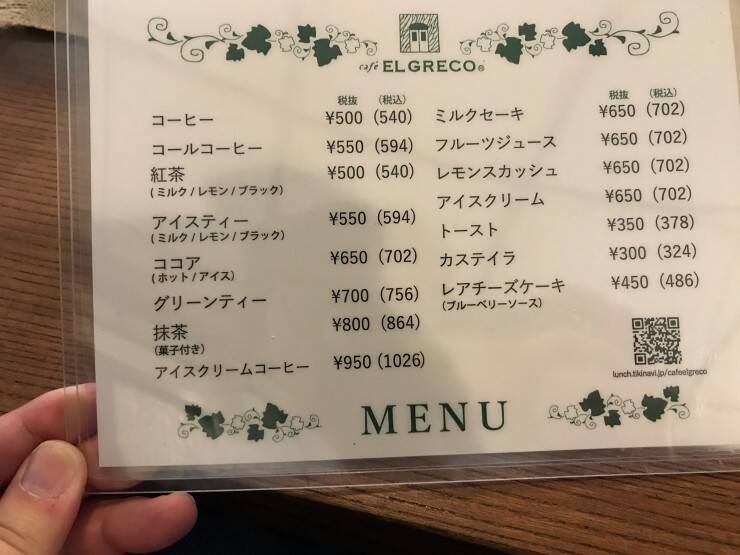 café ELGRECO®
税抜 (税込)
コーヒー ¥500 (540)
コールコーヒー ¥550 (594)
紅茶 ¥500 (540)
(ミルク/レモン/ブラック)
アイスティー ¥550 (594)
(ミルク/レモン/ブラック)
ココア ¥650 (702)
(ホット/アイス)
グリーンティー ¥700 (756)
抹茶 ¥800 (864)
(菓子付き)
アイスクリームコーヒー ¥950 (1026)
税抜 (税込)
ミルクセーキ ¥650 (702)
フルーツジュース ¥650 (702)
レモンスカッシュ ¥650 (702)
アイスクリーム ¥650 (702)
トースト ¥350 (378)
カステイラ ¥300 (324)
レアチーズケーキ ¥450 (486)
(ブルーベリーソース)
lunch.tikinavi.jp/cafeelgreco
MENU